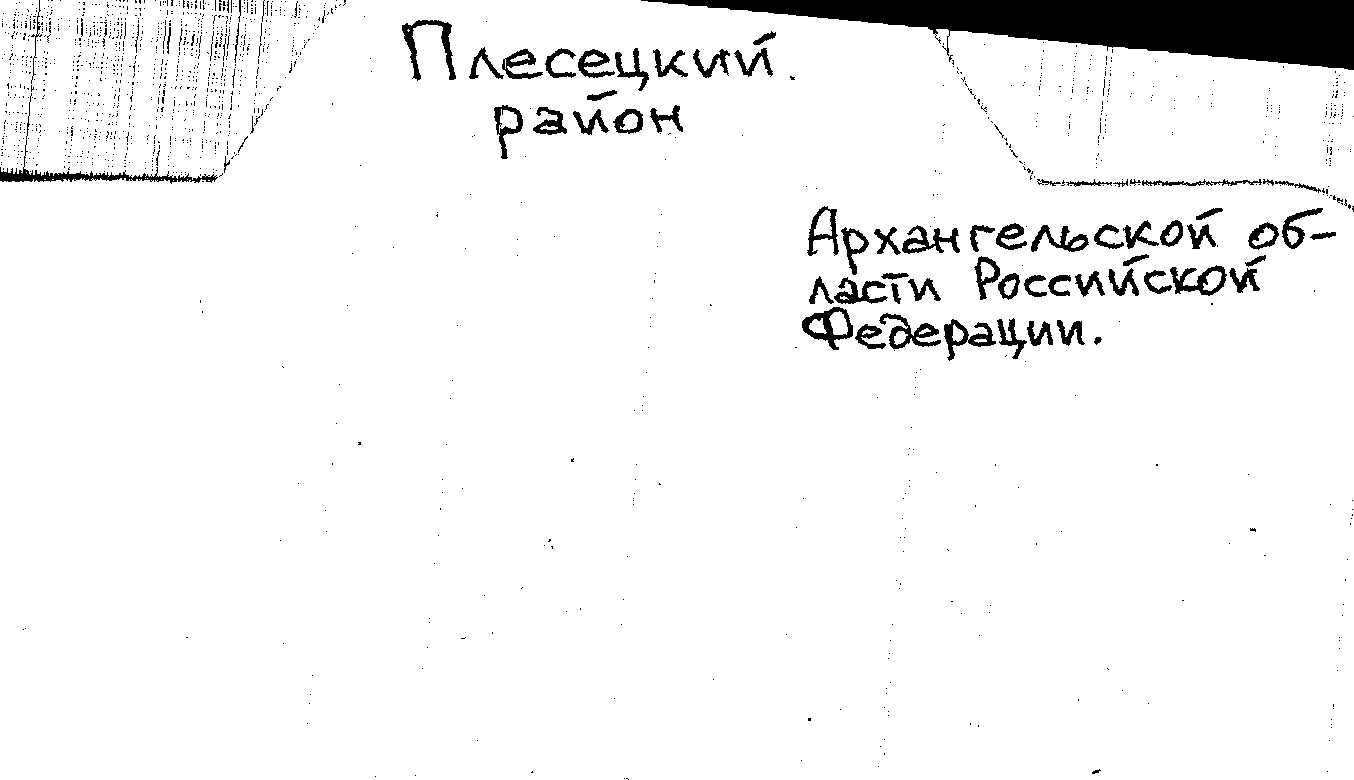 Плесецкий
район
Архангельской об-
ласти Российской
Федерации.